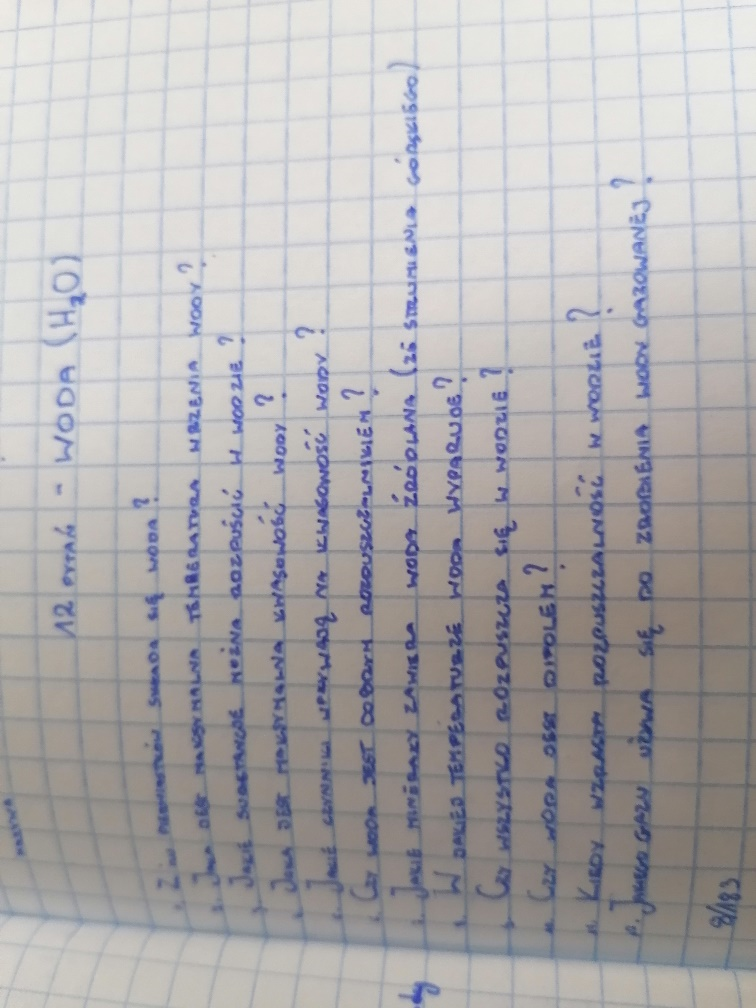 12 PYTAŃ - WODA (H₂O)
1. Z ilu pierwiastków SKŁADA SIĘ WODA?
2. JAKA JEST MAKSYMALNA TEMPERATURA WRZENIA WODY?
3. JAKIE SUBSTANCJE MOŻNA ROZPUŚCIĆ W WODZIE?
4. JAKA JEST MAKSYMALNA KWASOWOŚĆ WODY?
5. JAKIE CZYNNIKI WPŁYWAJĄ NA KWASOWOŚĆ WODY?
6. CZY WODA JEST DOBRYM ROZPUSZCZALNIKIEM?
7. JAKIE MINERAŁY ZAWIERA WODA ŹRÓDLANA (ZE STRUMIENIA GÓRSKIEGO)
8. W JAKIEJ TEMPERATURZE WODA WYPARUJE?
9. CZY WSZYSTKO ROZPUSZCZA SIĘ W WODZIE?
10. CZY WODA JEST DIPOLEM?
11. KIEDY WZRASTA ROZPUSZCZALNOŚĆ W WODZIE?
12. JAKIEGO GAZU UŻYWA SIĘ DO ZROBIENIA WODY GAZOWANEJ?
8/183